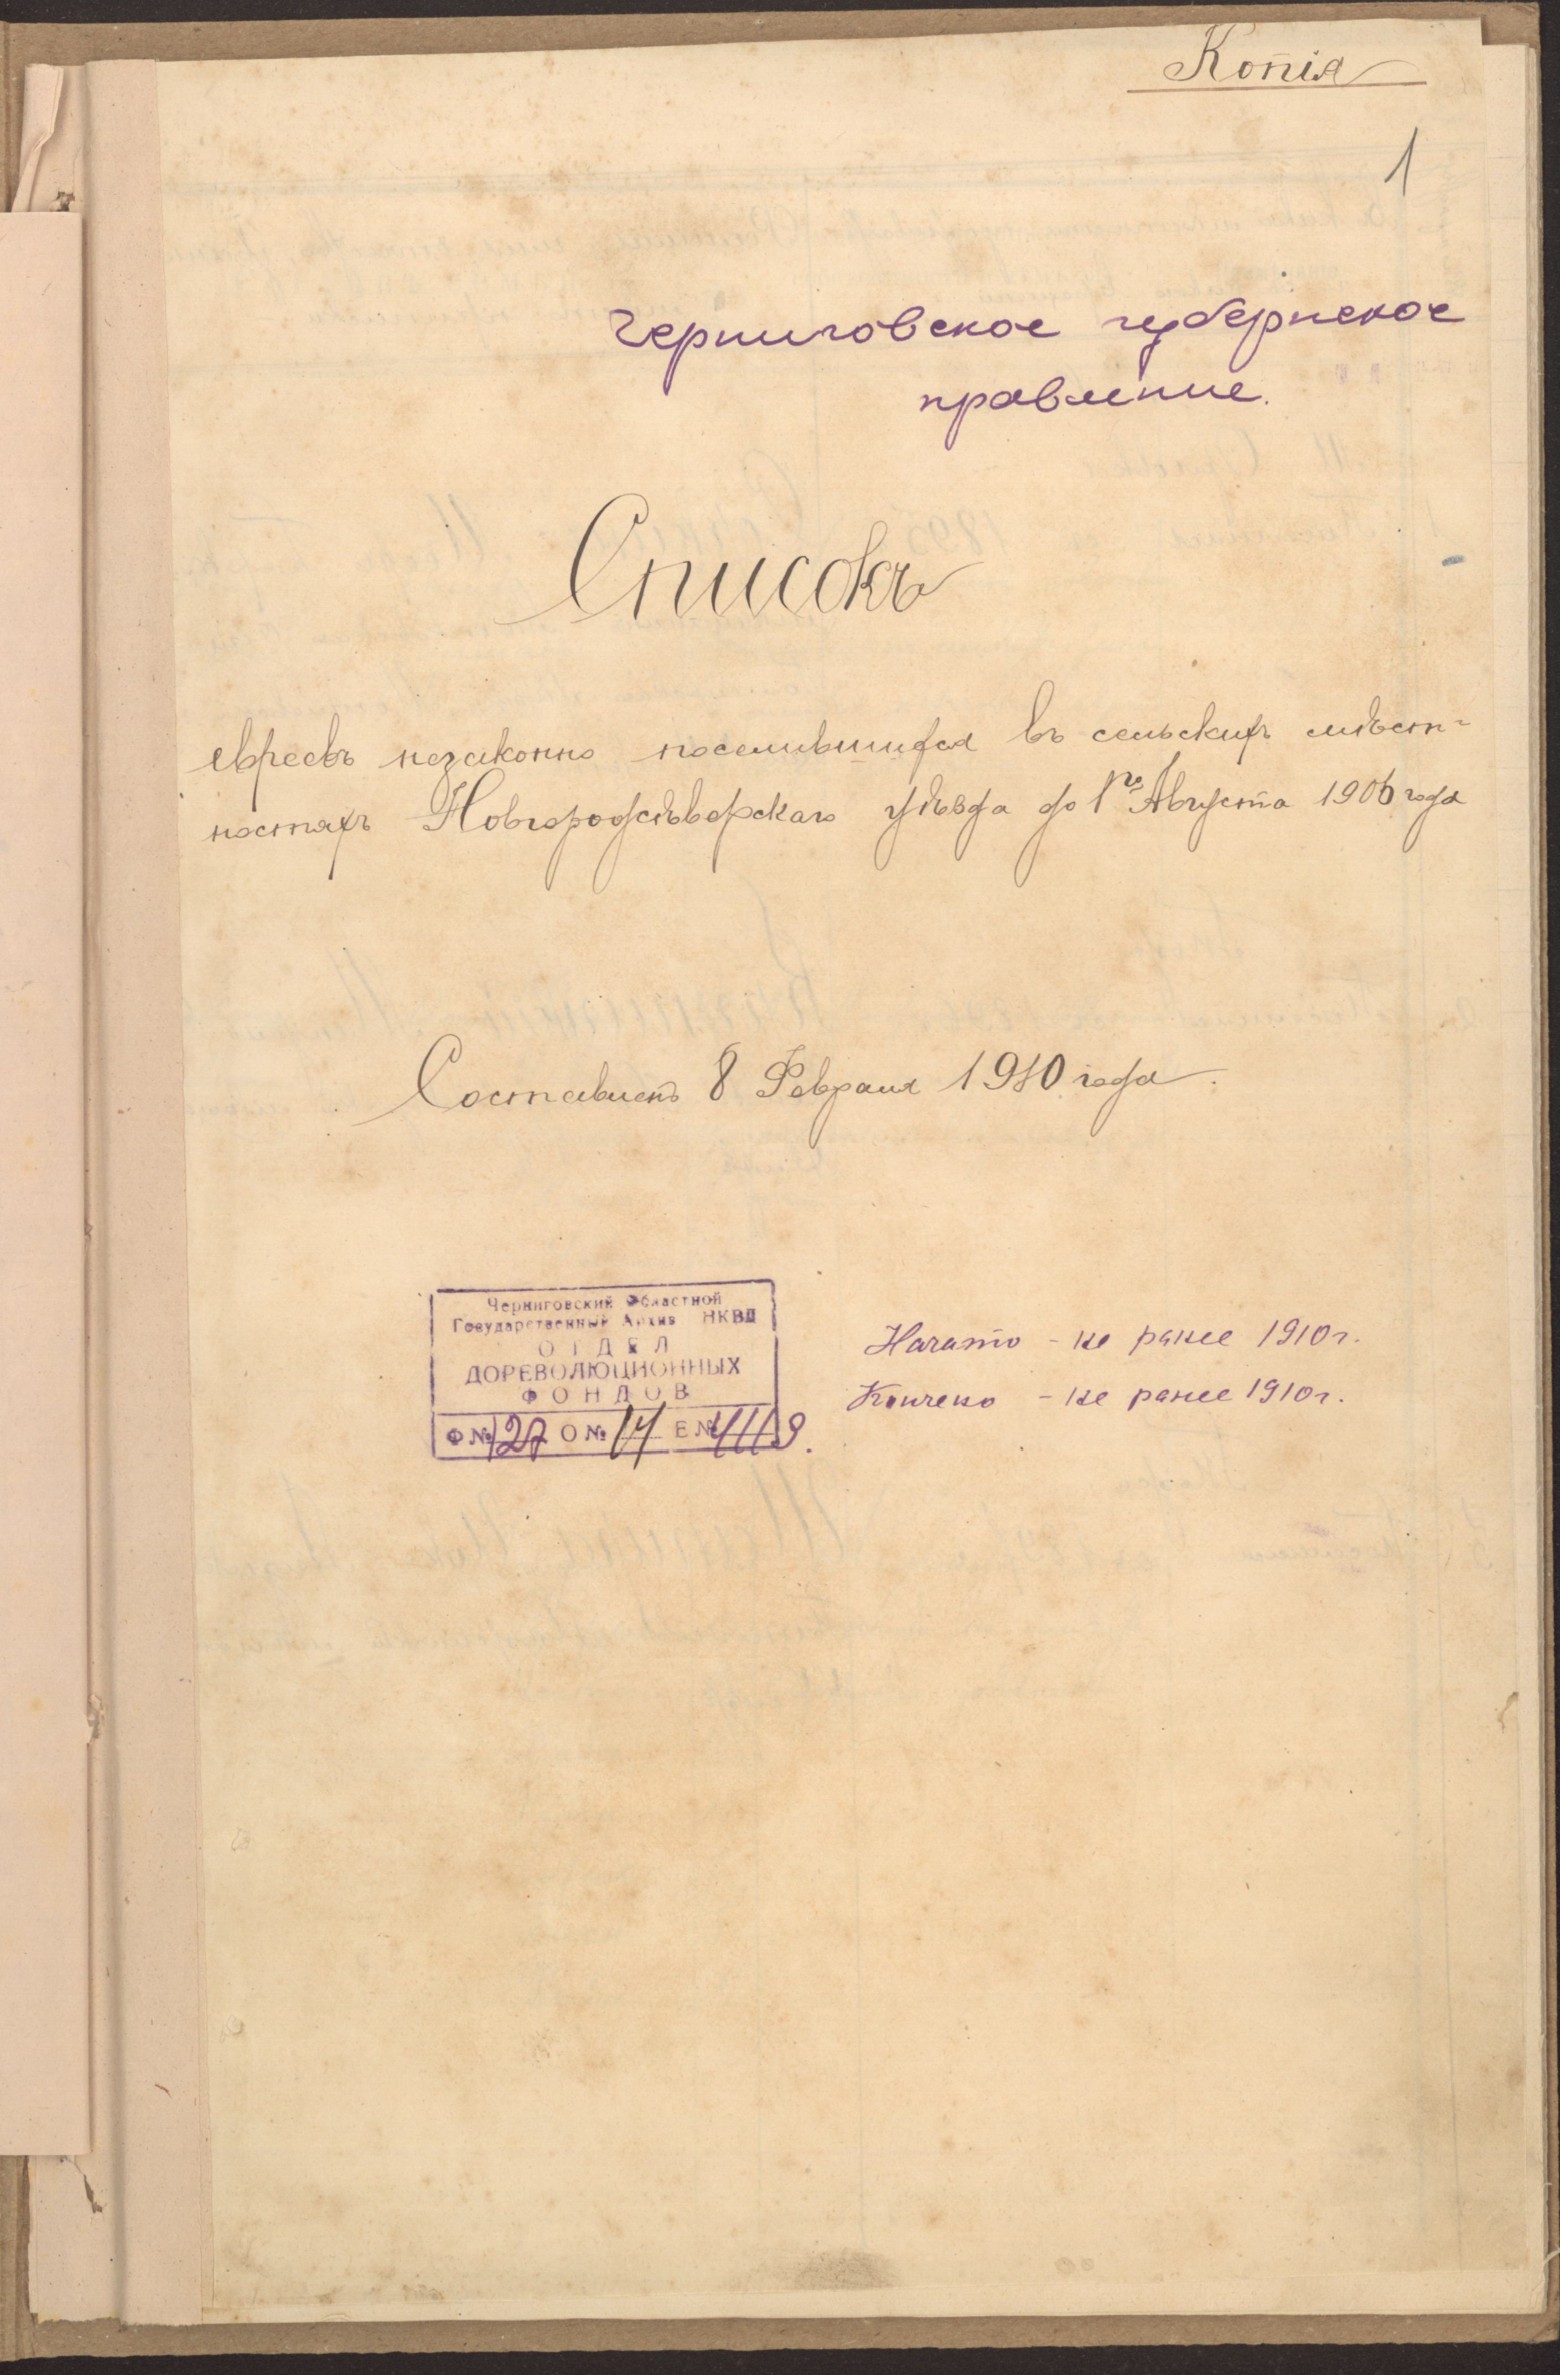 Копія
1
Черниговское губернское
правление.
Списокъ
евреевъ незаконно поселившихся въ сельскихъ мѣст-
ностяхъ Новгородсѣверскаго уѣзда до 1го Августа 1906 года
Составленъ 8 Февраля 1910 года.
Черниговский Областной
Государственный Архив НКВД
ОТДЕЛ
ДОРЕВОЛЮЦИОННЫХ
ФОНДОВ
Ф № 127 О № 14 Е №
Начато - не ранее 1910 г.
Кончено - не ранее 1910 г.